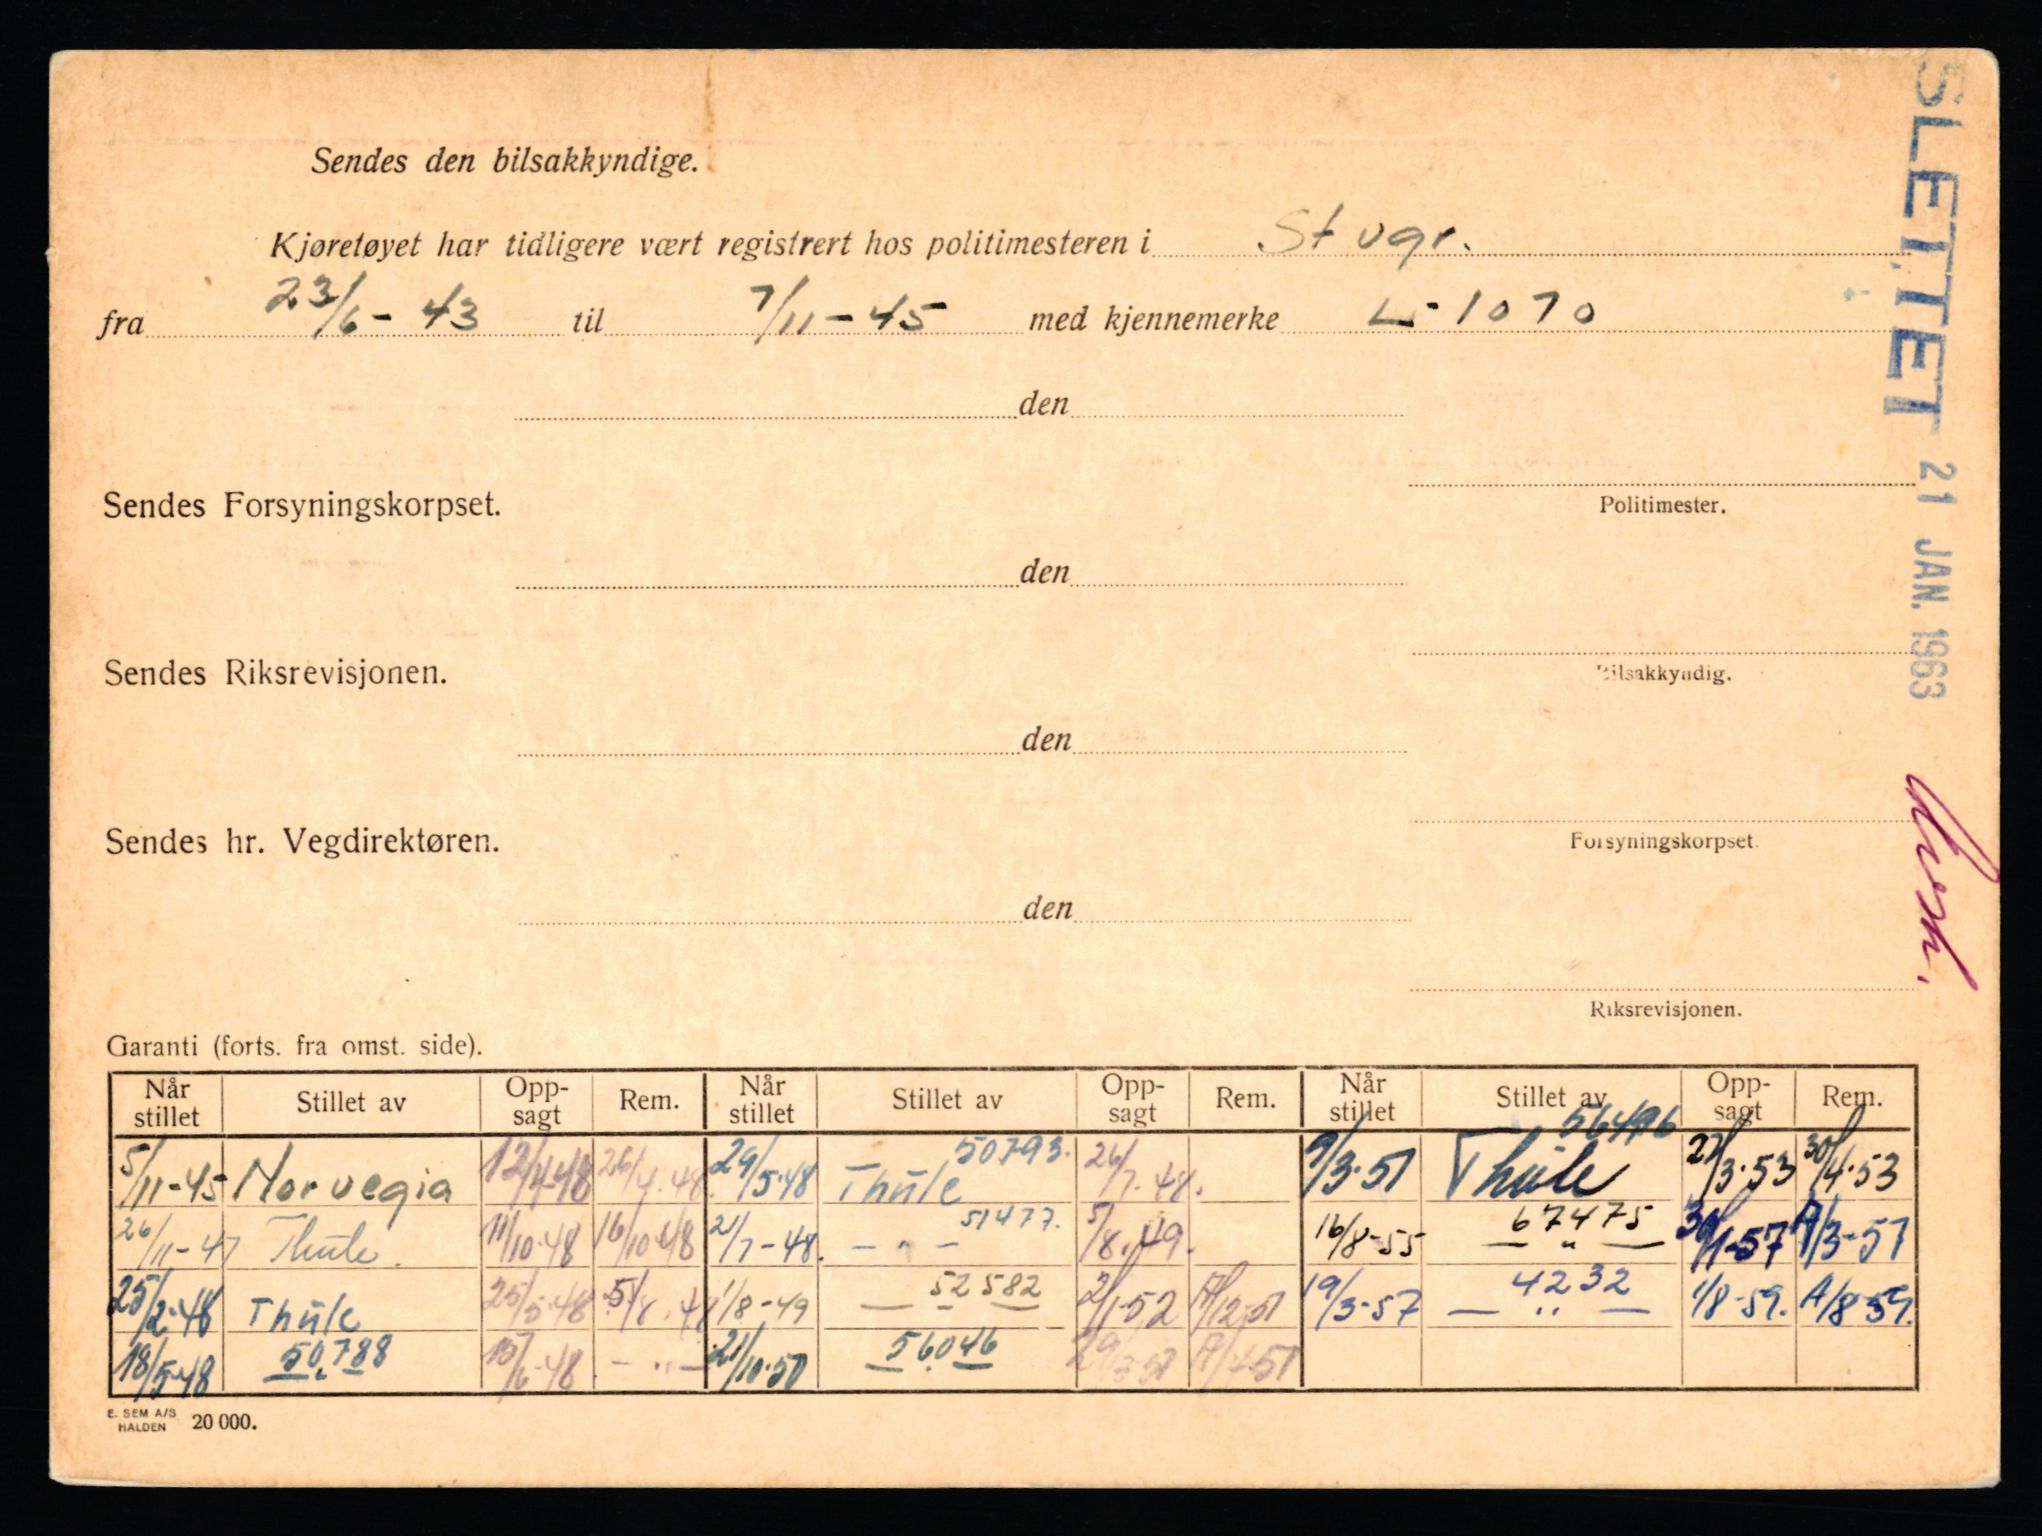 Sendes den bilsakkyndige.
Kjøretøyet har tidligere vært registrert hos politimesteren i St vgr.
fra 23/6 - 43 til 7/11 - 45 med kjennemerke L - 1070
den
Sendes Forsyningskorpset.
Politimester.
den
Sendes Riksrevisjonen.
Bilsakkyndig.
den
Sendes hr. Vegdirektøren.
Forsyningskorpset.
den
Riksrevisjonen.
SLETTET 21 JAN. 1963
Garanti (forts. fra omst. side).
Når stillet Stillet av Opp-sagt Rem. Når stillet Stillet av Opp-sagt Rem. Når stillet Stillet av Opp-sagt Rem.
5/11-45 Norvegia 12/4-48 26/4.48. 29/5.48 Thule 50793. 26/7.48. 9/3-51 Thule 27/3.53 30/4.53
26/11-47 Thule. 11/10.48 16/10.48 21/7-48. — " — 51477. 5/8.49. 16/8-55 — " — 67475 30/1-57 A/3-57
25/2-48 Thule 25/5.48 5/8.48 1/8-49 — " — 52582 2/1-52 A/12-51 19/3-57 — " — 4232 1/8-59. A/8-59.
18/5-48 50788 — " — 15/6-48 — " — 21/10-50 — " — 56046 29/3-51 A/4-51
E. SEM A/S
HALDEN 20 000.